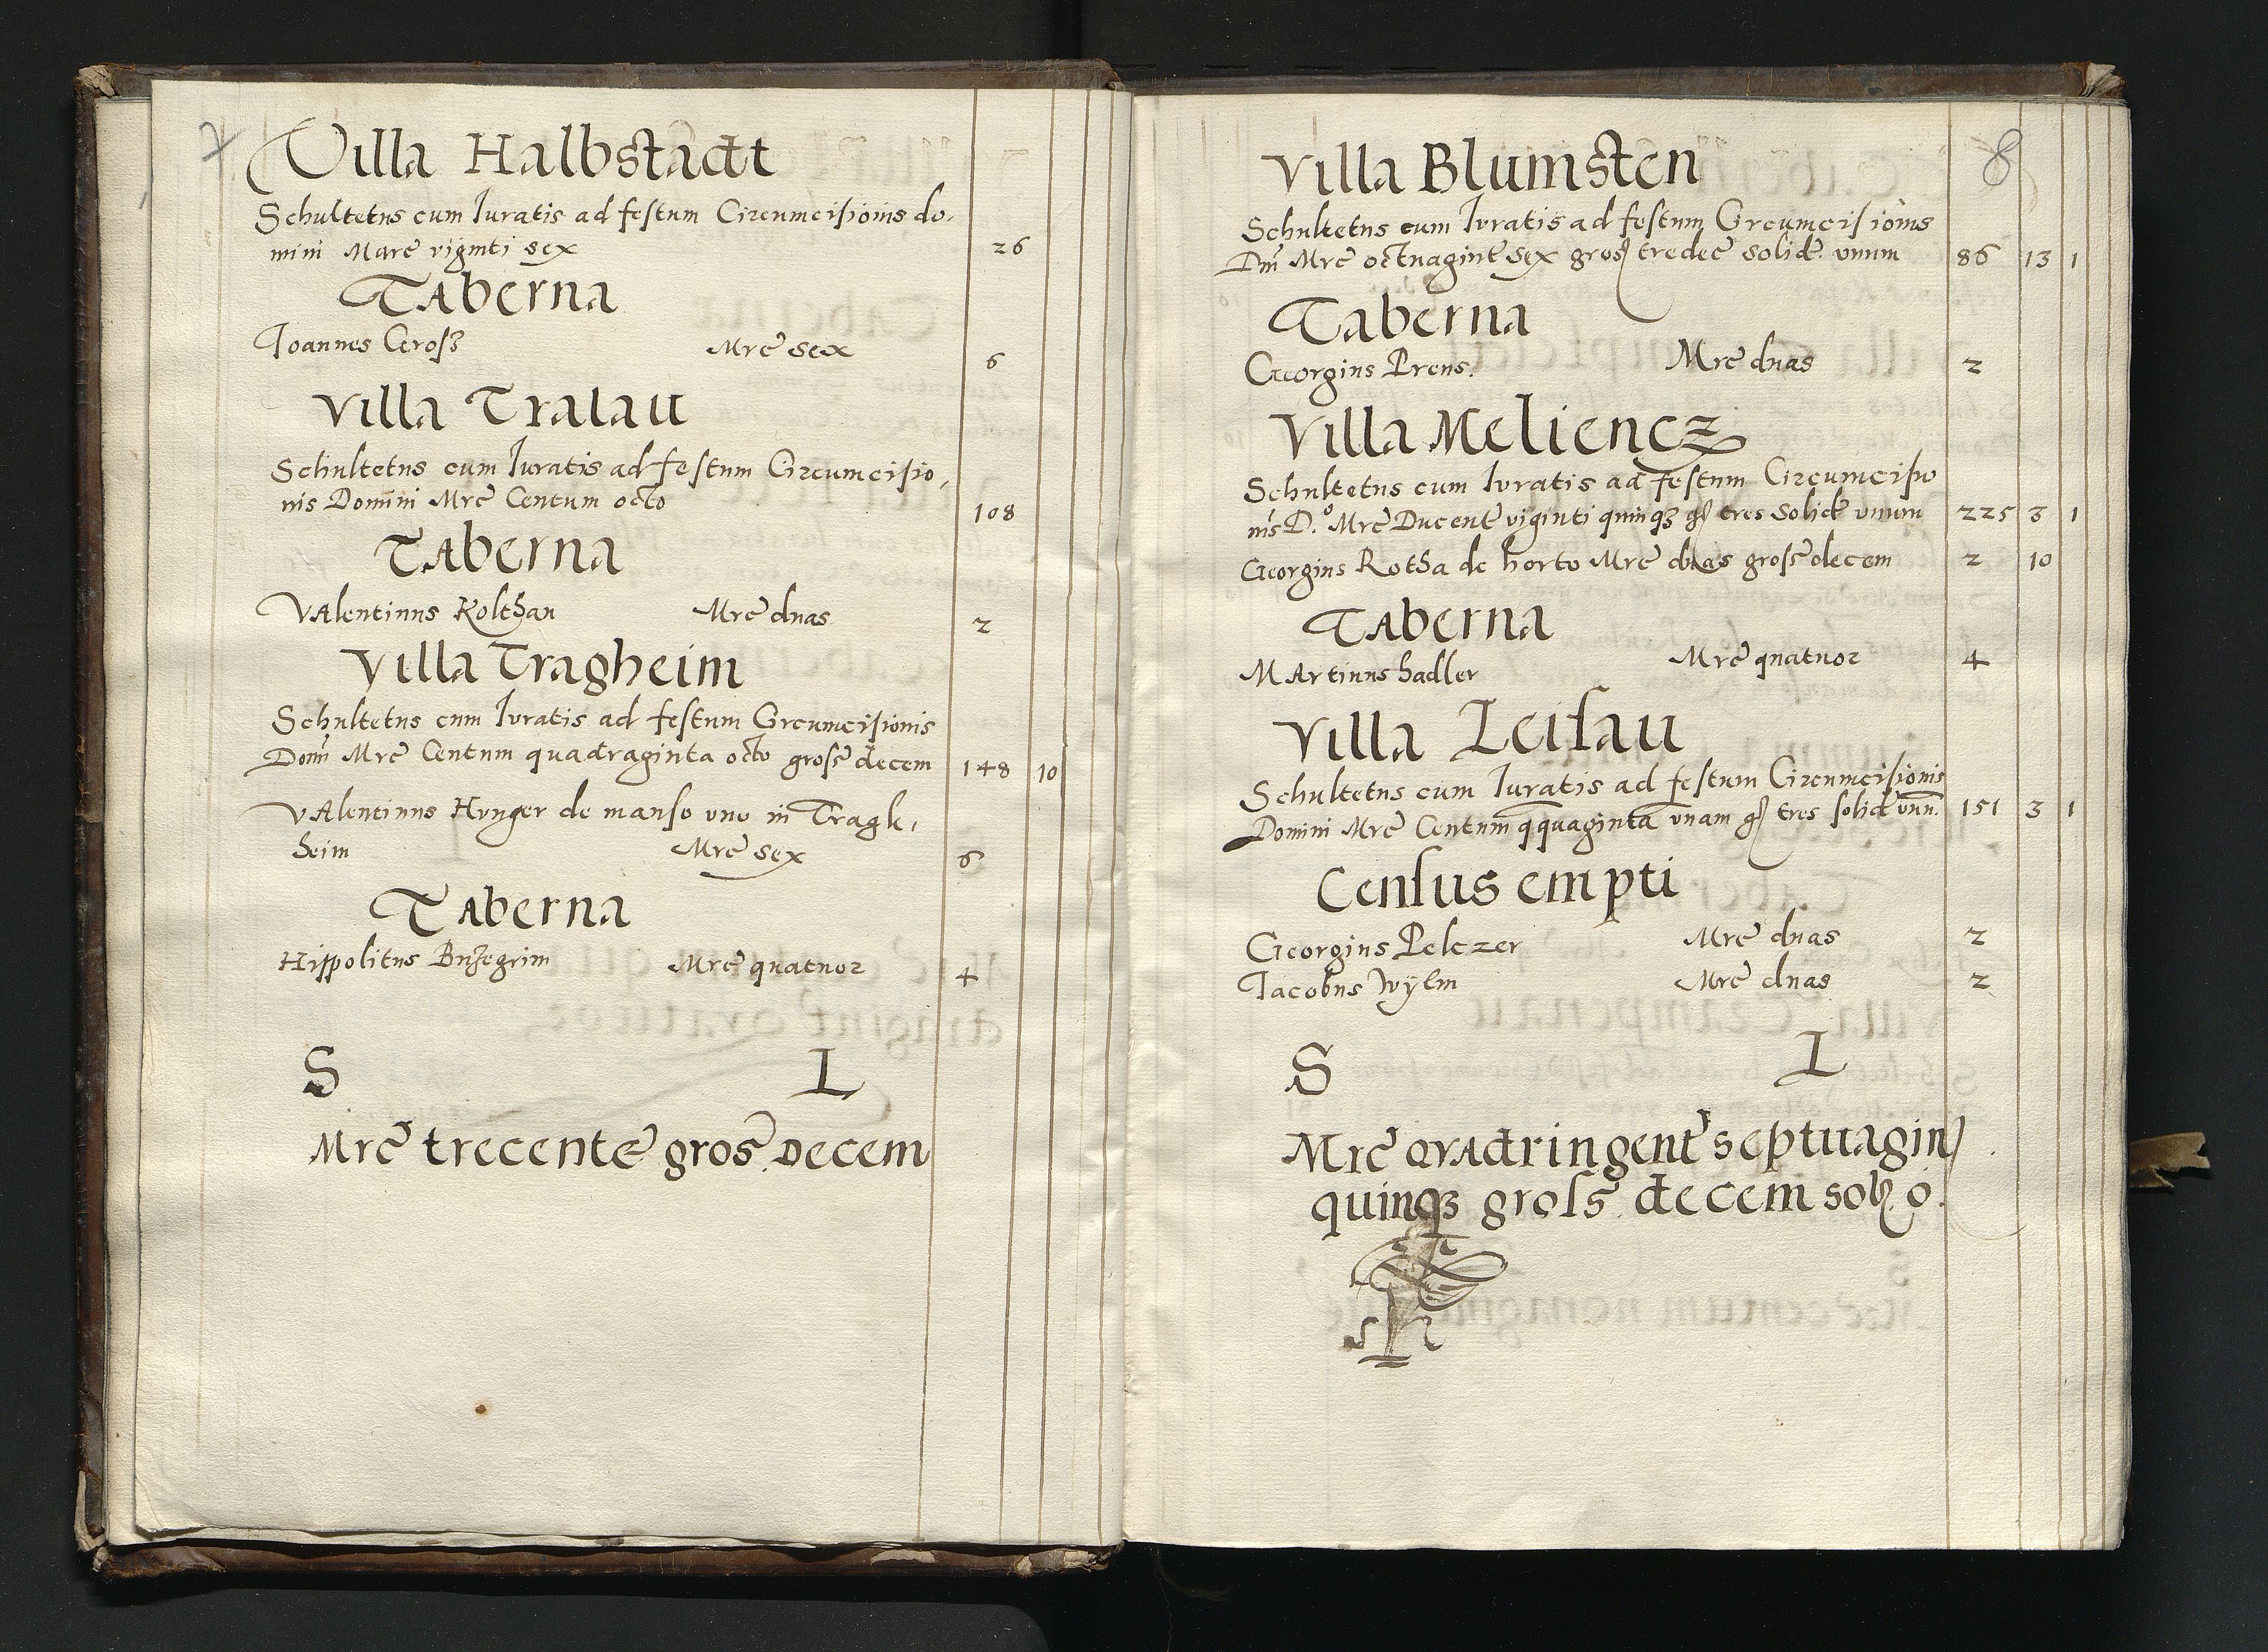 7
Villa Halbstadt
Schultetus cum Iuratis ad festum Circumcisionis do,
mini Marc viginti sex 26
Taberna
Joannes Grosz Mrc sex 6
Villa Tralau
Schultetus cum Iuratis ad festum Circumcisio,
nis Domini Mrc Centum octo 108
Taberna
Valentinus Kolthan Mrc duas 2
Villa Tragheim
Schultetus cum Iuratis ad festum Circumcisionis
Domi Mrc Centum quadraginta octo gross decem 148 10
Valentinus Hunger de manso uno in Tragk,
heim Mrc sex 6
Taberna
Hippolitus Buzegrim Mrc quatuor 4
S L
Mrc trecente gros. Decem
8
Villa Blumsten
Schultetus cum Iuratis ad festum Circumcisionis
Dni Mrc octuagint sex gros tredec solid. unum 86 13 1
Taberna
Georgius Preus. Mrc duas 2
Villa Meliencz
Schultetus cum Iuratis ad festum Circumcisio
nis D.º Mrc Ducent viginti quinqz g tres Solid unum 225 3 1
Georgius Rotha de horto Mrc duas gross decem 2 10
Taberna
Martinus hadler Mrc quatuor 4
Villa Leisau
Schultetus cum Iuratis ad festum Circumcisionis
Domini Mrc Centum qquaginta unam g tres solid unu. 151 3 1
Census empti
Georgius Pelczer Mrc duas 2
Jacobus Wÿlm Mrc duas 2
S L
Mrc Quadringent septuagin
quinqz gross. decem sol. o.